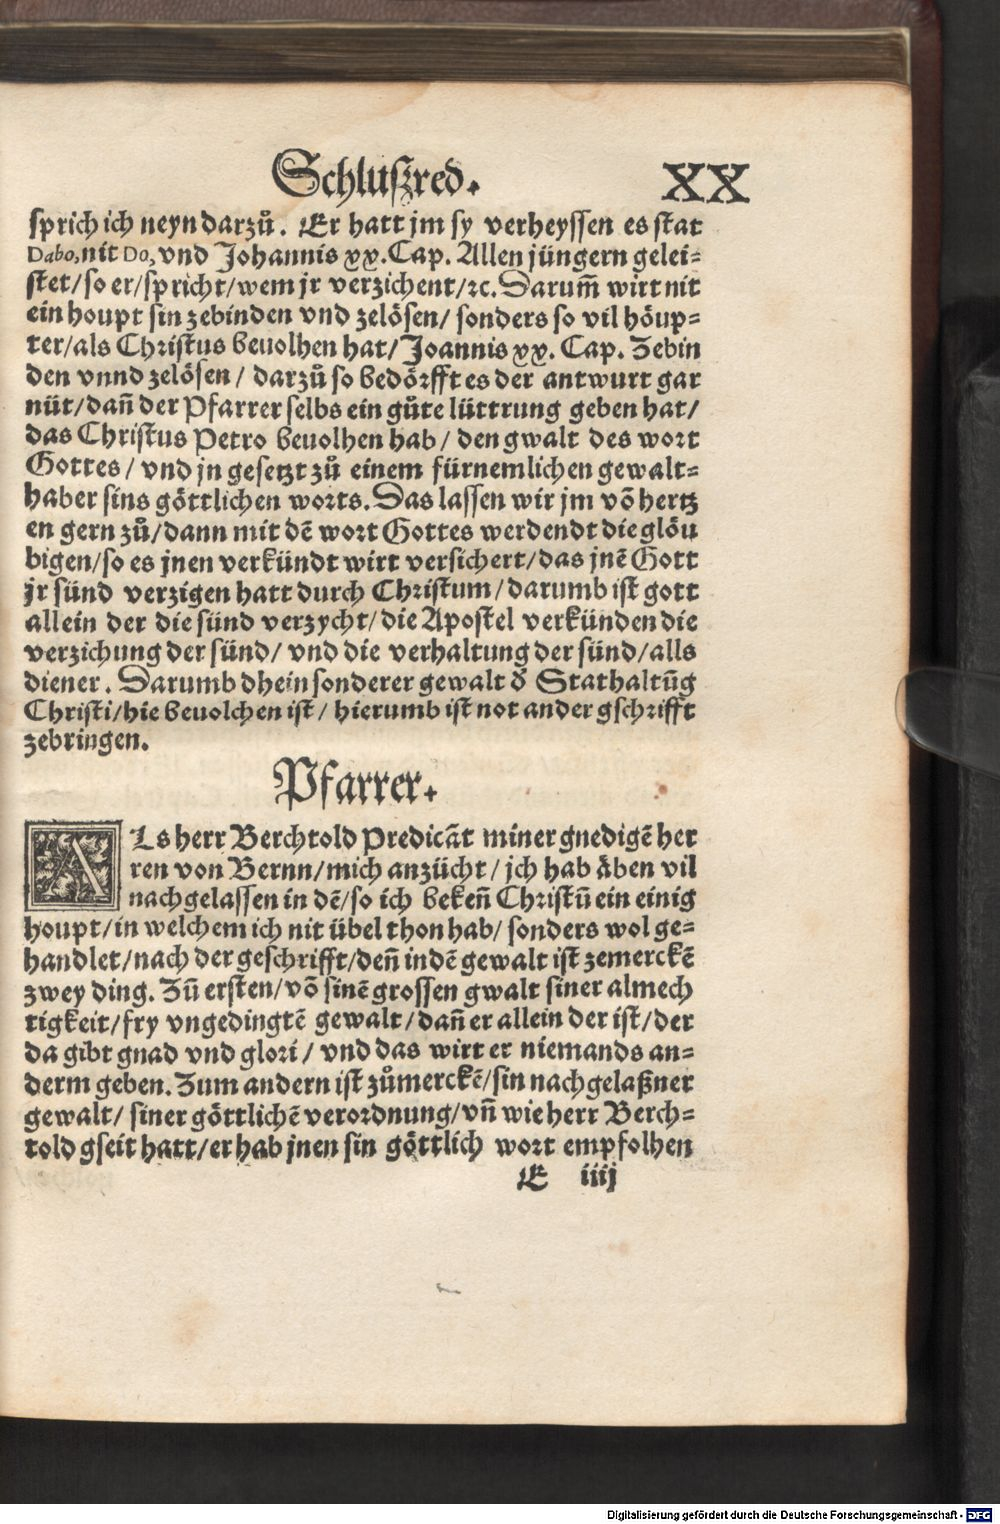 Schlußred. XX
sprich ich neyn darzů. Er hatt jm sy verheyssen es stat
Dabo, nit Do, vnd Johannis xx. Cap. Allen jüngern gelei⸗
stet/ so er/ spricht/ wem jr verzichent/ ꝛc. Darum̃ wirt nit
ein houpt sin zebinden vnd zelösen/ sonders so vil höup⸗
ter/ als Christus beuolhen hat/ Joannis xx. Cap. Zebin
den vnnd zelösen/ darzů so bedörfft es der antwurt gar
nüt/ dañ der Pfarrer selbs ein gůte lüttrung geben hat/
das Christus Petro beuolhen hab/ den gwalt des wort
Gottes/ vnd jn gesetzt zů einem fürnemlichen gewalt⸗
haber sins göttlichen worts. Das lassen wir jm võ hertz
en gern zů/ dann mit dẽ wort Gottes werdendt die glöu
bigen/ so es jnen verkündt wirt versichert/ das jnẽ Gott
jr sünd verzigen hatt durch Christum/ darumb ist gott
allein der die sünd verzycht/ die Apostel verkünden die
verzichung der sünd/ vnd die verhaltung der sünd/ alls
diener. Darumb dhein sonderer gewalt d̕ Stathaltũg
Christi/ hie beuolchen ist/ hierumb ist not ander gschrifft
zebringen.
Pfarrer.
ALs herr Berchtold Predicãt miner gnedigẽ her
ren von Bernn/ mich anzücht/ jch hab äben vil
nachgelassen in dẽ/ so ich bekeñ Christũ ein einig
houpt/ in welchem ich nit übel thon hab/ sonders wol ge⸗
handlet/ nach der geschrifft/ deñ in dẽ gewalt ist zemerckẽ
zwey ding. Zũ ersten/ võ sinẽ grossen gwalt siner almech
tigkeit/ fry vngedingtẽ gewalt/ dañ er allein der ist/ der
da gibt gnad vnd glori/ vnd das wirt er niemands an⸗
derm geben. Zum andern ist zůmerckẽ/ sin nachgelaßner
gewalt/ siner göttlichẽ verordnung/ vñ wie herr Berch⸗
told gseit hatt/ er hab jnen sin göttlich wort empfolhen
E iiij
Digitalisierung gefördert durch die Deutsche Forschungsgemeinschaft - DFG